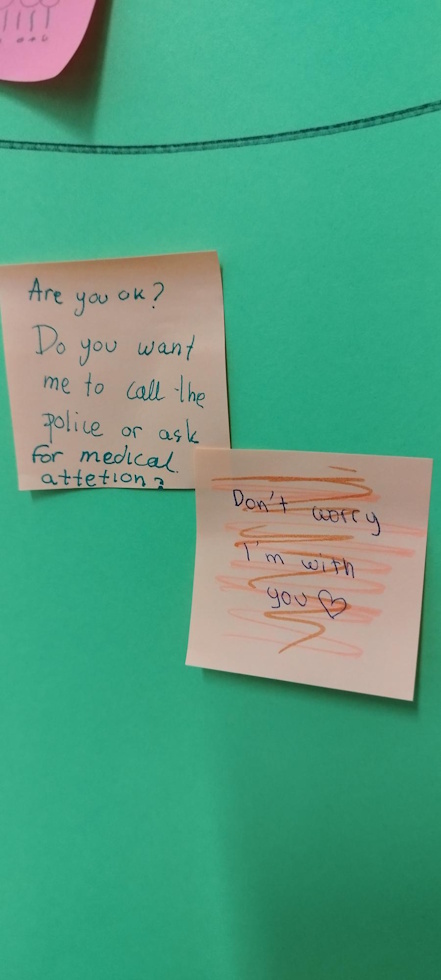 Are you ok?
Do you want
me to call the
police or ask
for medical
attetion?
Don't worry
I'm with
you ♡